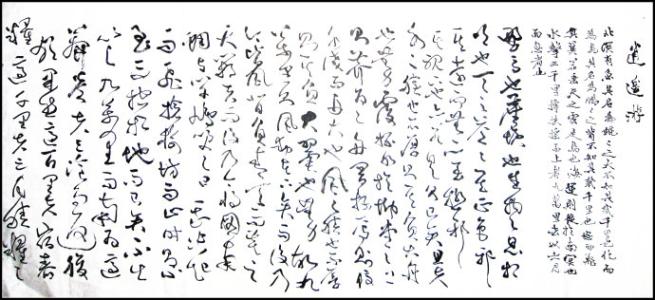 逍遥游
北冥有魚其名為鯤々之大不知其幾千里也化而
為鳥其名為鵬々之背不知其幾千里也怒而飛
其翼若垂天之雲是鳥也海運則將徙於南冥也
水擊三千里摶扶搖而上者九萬里去以六月
而息者也
野馬也塵埃也生物之息相
吹也天之蒼々其正色邪
其遠而無所至極邪
其視下也亦若是則已矣且夫
水之積也不厚則其負大舟
也無力覆杯水於坳堂之上
則芥為之舟置杯焉則膠
水淺而舟大也風之積也不厚
則其負大翼也無力故九
萬里則風斯在下矣而後乃
今培風背負青天而莫之
夭閼者而後乃今將圖南
蜩與學鳩笑之曰我決起
而飛搶榆枋而止時則不
至而控於地而已矣奚以
之九萬里而南為適
莽蒼者三湌而反腹
猶果然適百里者宿舂
糧適千里者三月聚糧